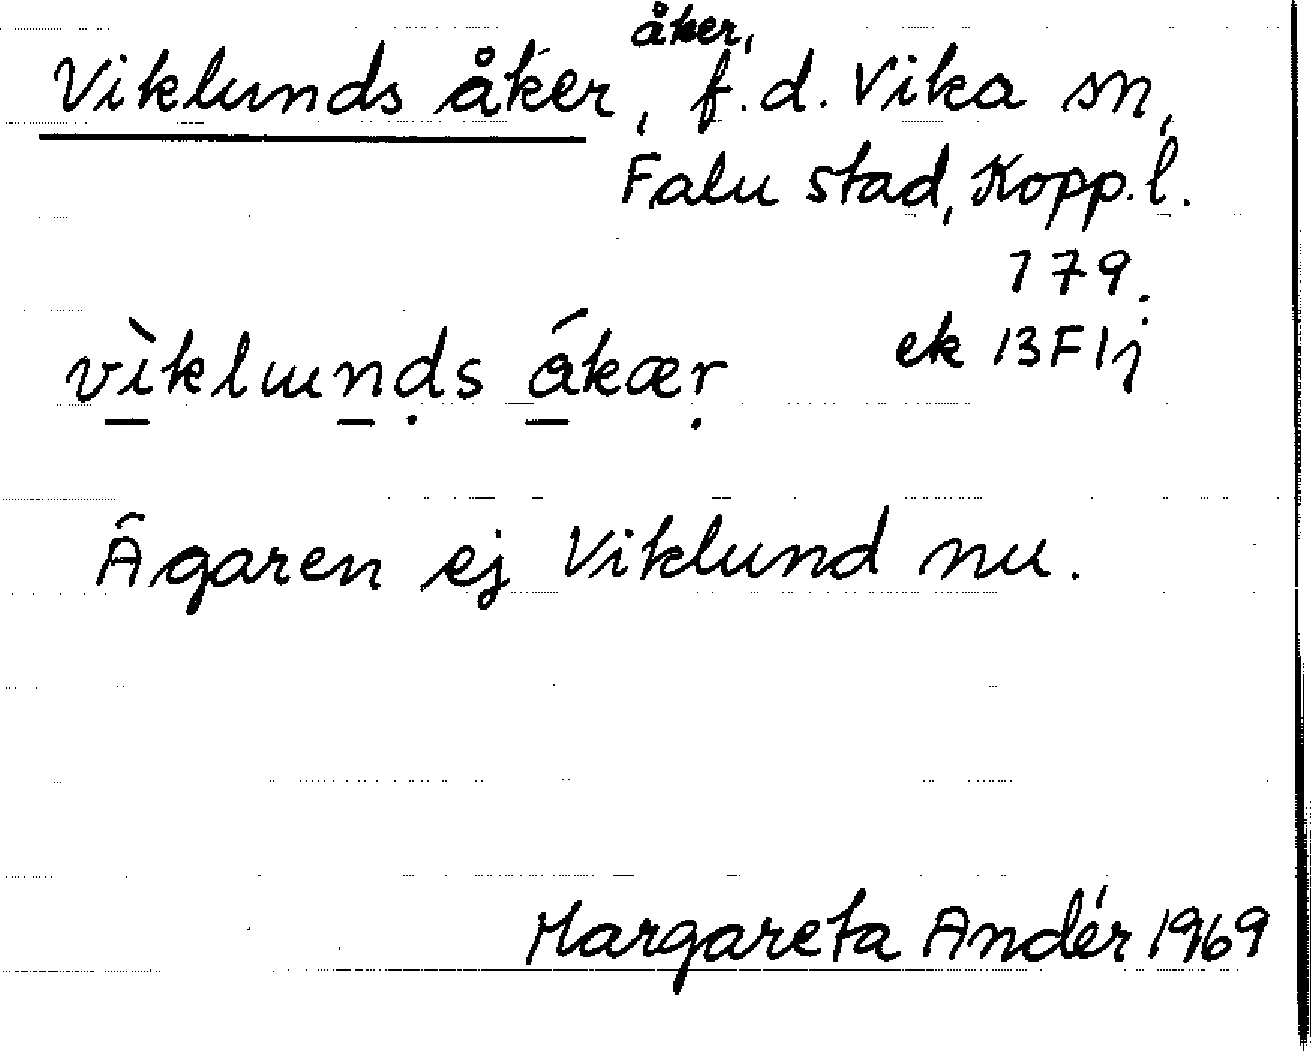 Viklunds åker, åker, f.d. Vika sn,
Falu stad, Kopp. l.
179.
vìklɯnds ákær ek 13F1j
Ägaren ej Viklund nu.
Margareta Andér 1969